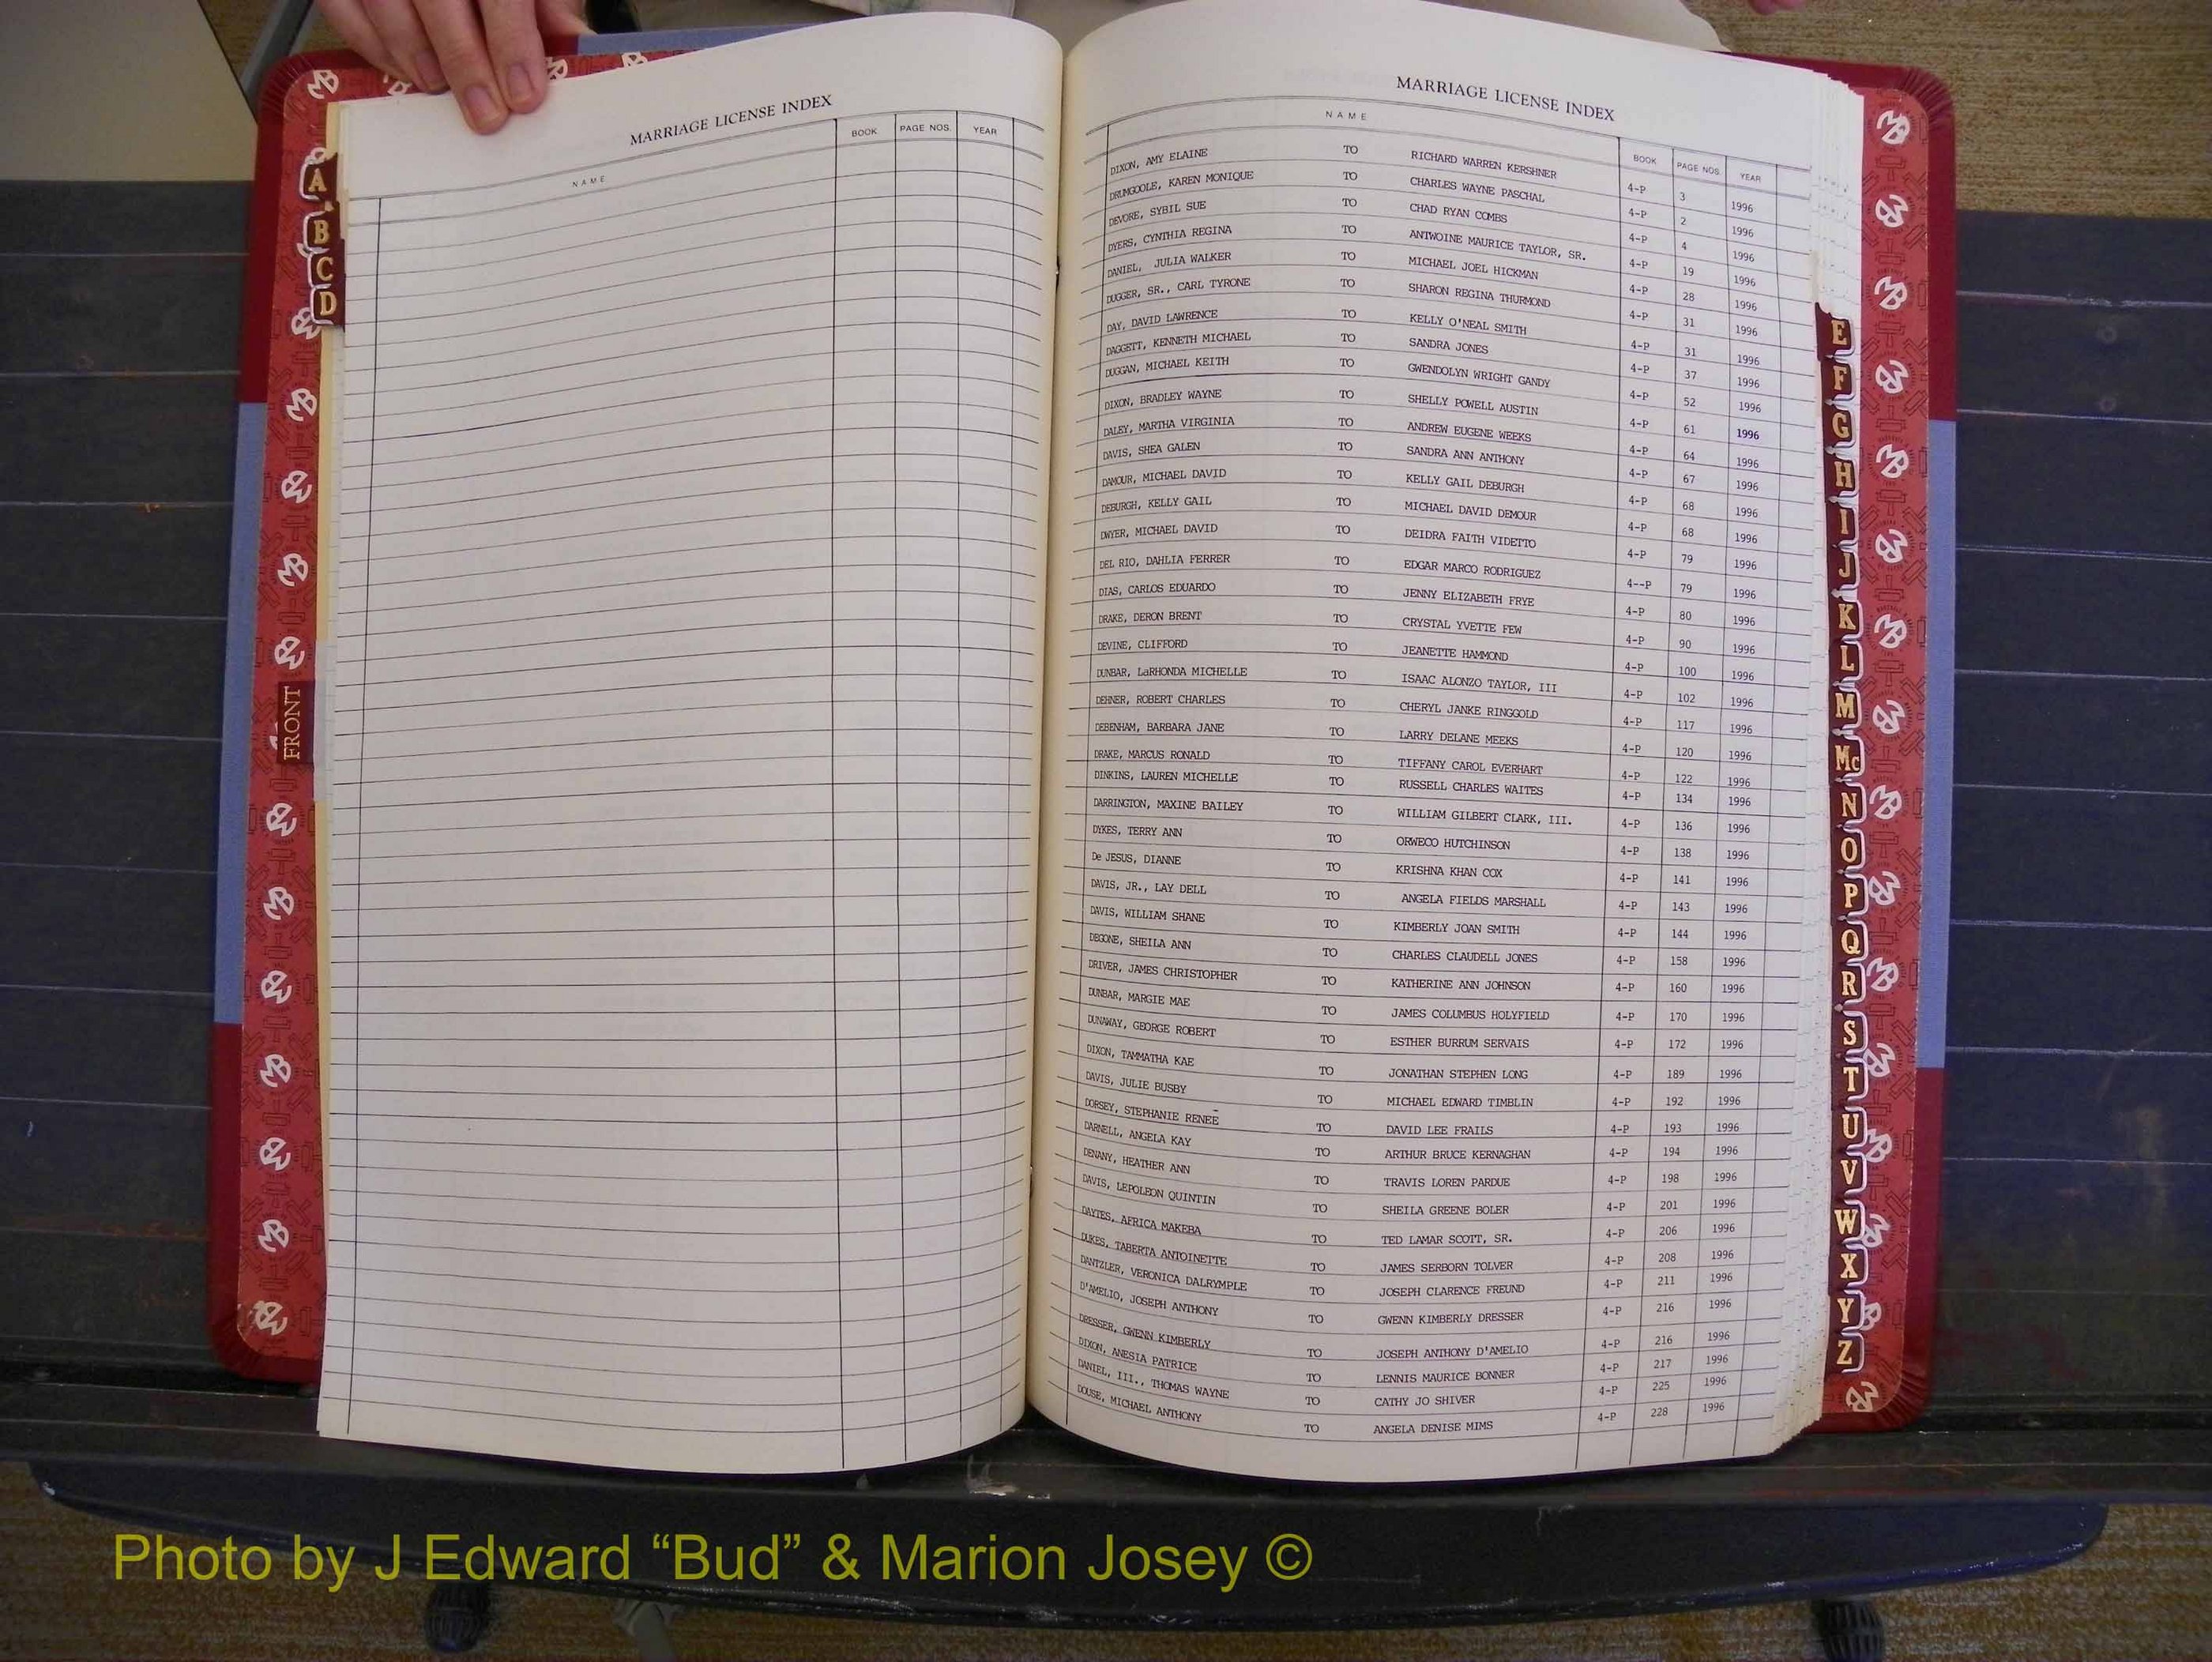 MARRIAGE LICENSE INDEX
NAME BOOK PAGE NOS. YEAR
A
B
C
D
FRONT
MARRIAGE LICENSE INDEX
NAME BOOK PAGE NOS. YEAR
DIXON, AMY ELAINE TO RICHARD WARREN KERSHNER 4-P 3 1996
DRUMGOOLE, KAREN MONIQUE TO CHARLES WAYNE PASCHAL 4-P 2 1996
DEVORE, SYBIL SUE TO CHAD RYAN COMBS 4-P 4 1996
DYERS, CYNTHIA REGINA TO ANTWOINE MAURICE TAYLOR, SR. 4-P 19 1996
DANIEL, JULIA WALKER TO MICHAEL JOEL HICKMAN 4-P 28 1996
DUGGER, SR., CARL TYRONE TO SHARON REGINA THURMOND 4-P 31 1996
DAY, DAVID LAWRENCE TO KELLY O'NEAL SMITH 4-P 31 1996
DAGGETT, KENNETH MICHAEL TO SANDRA JONES 4-P 37 1996
DUGGAN, MICHAEL KEITH TO GWENDOLYN WRIGHT GANDY 4-P 52 1996
DIXON, BRADLEY WAYNE TO SHELLY POWELL AUSTIN 4-P 61 1996
DALEY, MARTHA VIRGINIA TO ANDREW EUGENE WEEKS 4-P 64 1996
DAVIS, SHEA GALEN TO SANDRA ANN ANTHONY 4-P 67 1996
DAMOUR, MICHAEL DAVID TO KELLY GAIL DEBURGH 4-P 68 1996
DEBURGH, KELLY GAIL TO MICHAEL DAVID DEMOUR 4-P 68 1996
DWYER, MICHAEL DAVID TO DEIDRA FAITH VIDETTO 4-P 79 1996
DEL RIO, DAHLIA FERRER TO EDGAR MARCO RODRIGUEZ 4--P 79 1996
DIAS, CARLOS EDUARDO TO JENNY ELIZABETH FRYE 4-P 80 1996
DRAKE, DERON BRENT TO CRYSTAL YVETTE FEW 4-P 90 1996
DEVINE, CLIFFORD TO JEANETTE HAMMOND 4-P 100 1996
DUNBAR, LaRHONDA MICHELLE TO ISAAC ALONZO TAYLOR, III 4-P 102 1996
DEHNER, ROBERT CHARLES TO CHERYL JANKE RINGGOLD 4-P 117 1996
DEBENHAM, BARBARA JANE TO LARRY DELANE MEEKS 4-P 120 1996
DRAKE, MARCUS RONALD TO TIFFANY CAROL EVERHART 4-P 122 1996
DINKINS, LAUREN MICHELLE TO RUSSELL CHARLES WAITES 4-P 134 1996
DARRINGTON, MAXINE BAILEY TO WILLIAM GILBERT CLARK, III. 4-P 136 1996
DYKES, TERRY ANN TO ORWECO HUTCHINSON 4-P 138 1996
De JESUS, DIANNE TO KRISHNA KHAN COX 4-P 141 1996
DAVIS, JR., LAY DELL TO ANGELA FIELDS MARSHALL 4-P 143 1996
DAVIS, WILLIAM SHANE TO KIMBERLY JOAN SMITH 4-P 144 1996
DEGONE, SHEILA ANN TO CHARLES CLAUDELL JONES 4-P 158 1996
DRIVER, JAMES CHRISTOPHER TO KATHERINE ANN JOHNSON 4-P 160 1996
DUNBAR, MARGIE MAE TO JAMES COLUMBUS HOLYFIELD 4-P 170 1996
DUNAWAY, GEORGE ROBERT TO ESTHER BURRUM SERVAIS 4-P 172 1996
DIXON, TAMMATHA KAE TO JONATHAN STEPHEN LONG 4-P 189 1996
DAVIS, JULIE BUSBY TO MICHAEL EDWARD TIMBLIN 4-P 192 1996
DORSEY, STEPHANIE RENEE TO DAVID LEE FRAILS 4-P 193 1996
DARNELL, ANGELA KAY TO ARTHUR BRUCE KERNAGHAN 4-P 194 1996
DENANY, HEATHER ANN TO TRAVIS LOREN PARDUE 4-P 198 1996
DAVIS, LEPOLEON QUINTIN TO SHEILA GREENE BOLER 4-P 201 1996
DAYTES, AFRICA MAKEBA TO TED LAMAR SCOTT, SR. 4-P 206 1996
DUKES, TABERTA ANTOINETTE TO JAMES SERBORN TOLVER 4-P 208 1996
DANTZLER, VERONICA DALRYMPLE TO JOSEPH CLARENCE FREUND 4-P 211 1996
D'AMELIO, JOSEPH ANTHONY TO GWENN KIMBERLY DRESSER 4-P 216 1996
DRESSER, GWENN KIMBERLY TO JOSEPH ANTHONY D'AMELIO 4-P 216 1996
DIXON, ANESIA PATRICE TO LENNIS MAURICE BONNER 4-P 217 1996
DANIEL, III., THOMAS WAYNE TO CATHY JO SHIVER 4-P 225 1996
DOUSE, MICHAEL ANTHONY TO ANGELA DENISE MIMS 4-P 228 1996
E
F
G
H
I
J
K
L
M
Mc
N
O
P
Q
R
S
T
U
V
W
X
Y
Z
Photo by J Edward “Bud” & Marion Josey ©